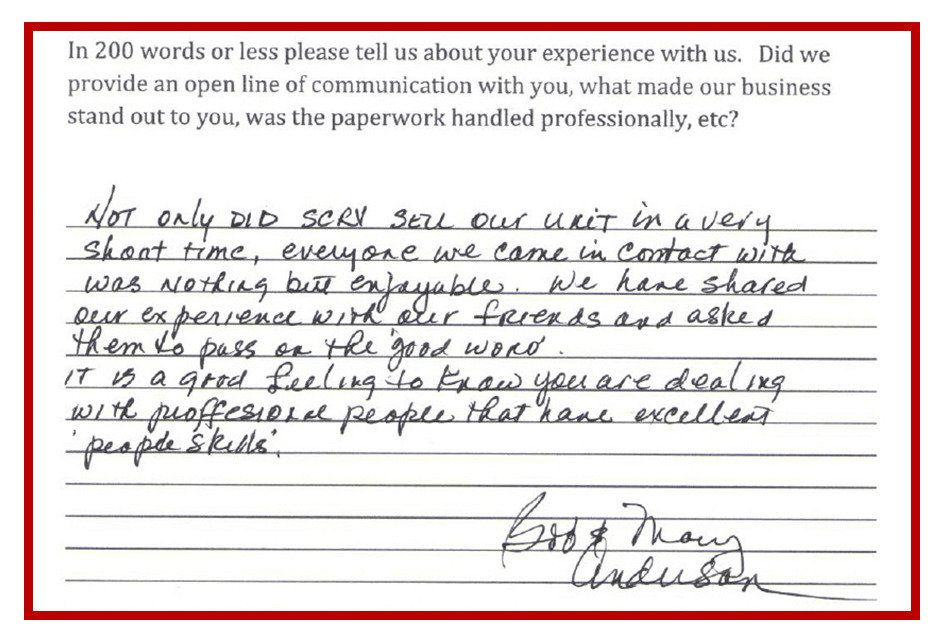 In 200 words or less please tell us about your experience with us. Did we
provide an open line of communication with you, what made our business
stand out to you, was the paperwork handled professionally, etc?
NOT only DID SCRV SELL our unit in a very
short time, everyone we came in contact with
was nothing but enjayable. We have shared
our experience with our friends and asked
them to pass on the 'good word'.
IT is a good feeling to know you are dealing
with proffesional people that have excellent
'people skills'.
Bob & Mary
Anderson